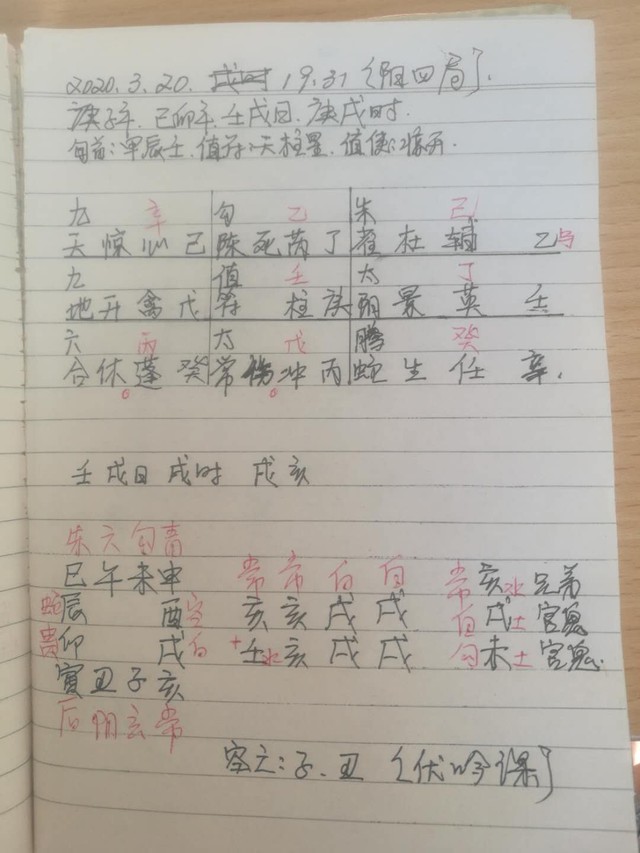 2020.3.20. 19.31 (阳四局).
庚子年.己卯年.壬戌日.庚戌时.
旬首:甲辰壬.值符:天柱星.值使:惊门.
九 辛 勾 乙 朱 己
天惊心己陈死芮丁雀杜辅 乙
九 值 壬 太 丁
地开禽戊符 柱庚阴景英 壬
六 丙 太 戊 腾 癸
合休蓬癸常伤冲丙蛇生任 辛.
壬戌日戌时 戌亥
朱六勾青
巳午未申 常常白白 常亥水兄弟
蛇辰 酉空 亥亥戌戌 白戌土官鬼
贵卯 戌白 +壬水亥戌戌 勾未土官鬼.
寅丑子亥
后阴玄常
空亡:子.丑 (伏吟课)